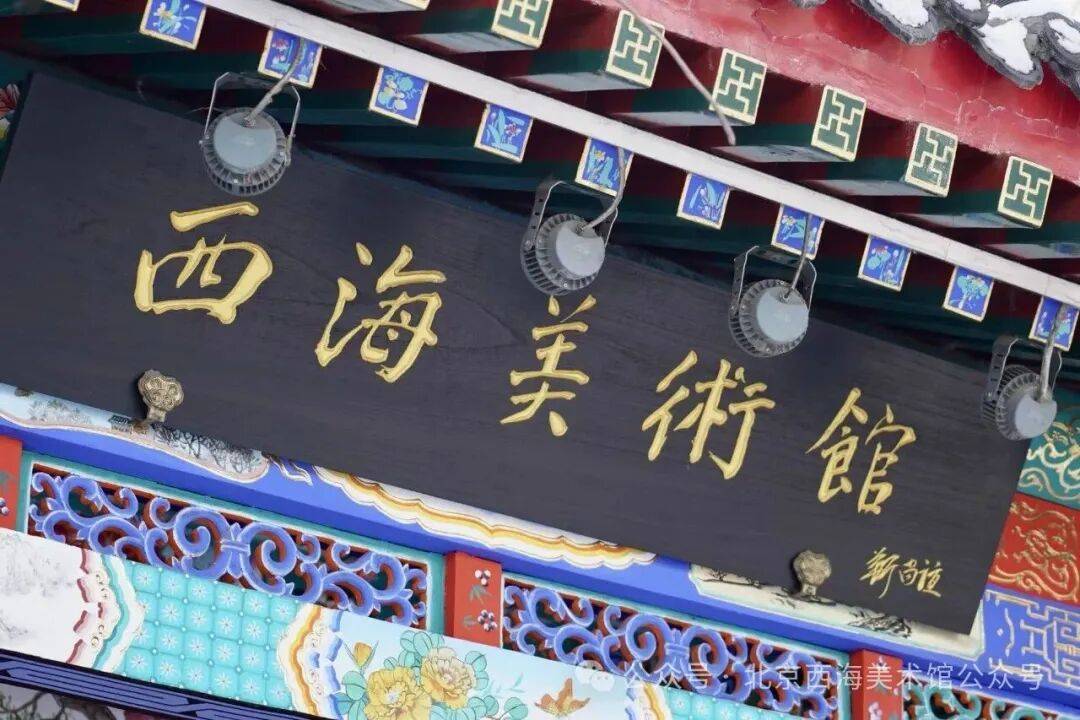 西海美術館
靳尚谊
公众号 · 北京西海美术馆公众号